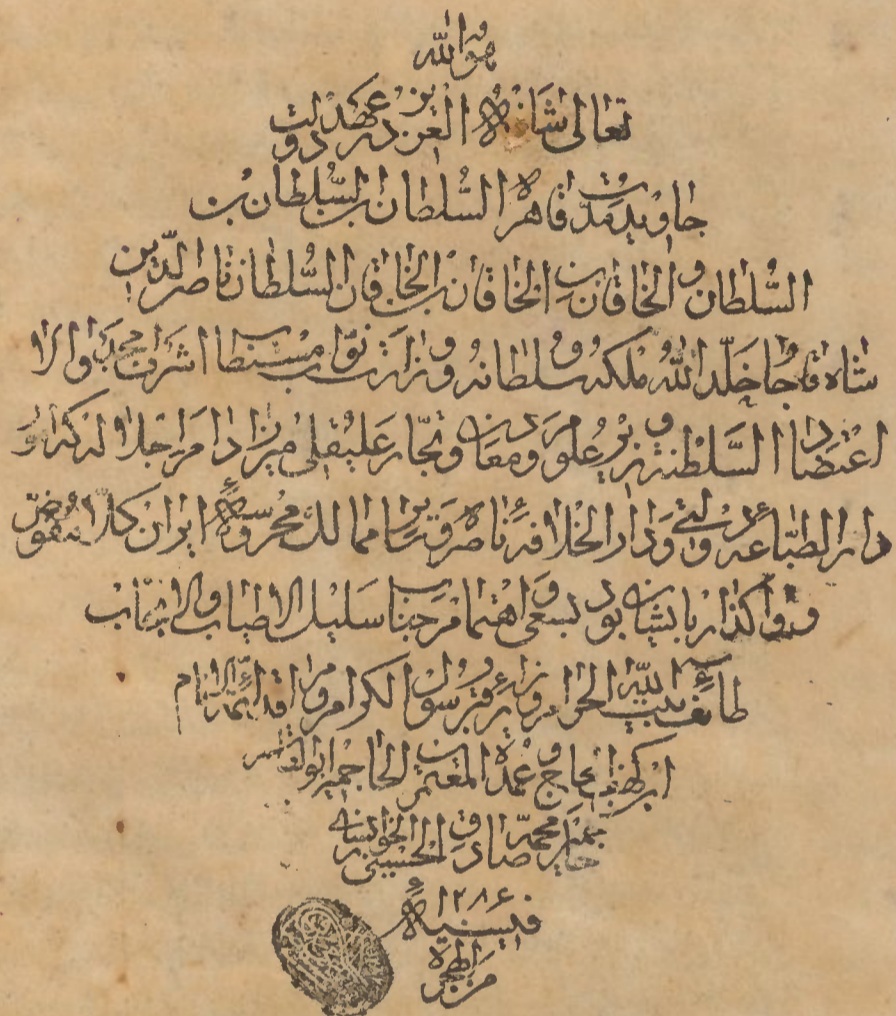 هو الله
تعالی شانه العزیز در عهد دولت
جاوید مدت قاهره السلطان بن السلطان بن
السلطان و الخاقان بن الخاقان بن الخاقان السلطان ناصرالدین
شاه قاجار خلد الله ملکه و سلطانه و وزارت نواب مستطاب اشرف امجد والا
اعتضاد السلطنه وزیر علوم و معادن و تجارت علیقلی میرزا دام اجلاله که امور
دار الطباعه دولتی و دار الخلافه ناصره و سایر ممالک محروسه ایران کلا مفوض
و واکذار بایشان بود بسعی و اهتمام جناب سلیل الاطیاب و الانجاب
طائف بیت الله الحرام و زائر قبر رسول الکرام و مراقد ائمة الانام
الحاج و عمدة المعتمرین الحاج میر ابوالقاسم
بن میر محمد صادق الحسینی الخوانساری
فی سنه ۱۲۸۶
من الهجرة